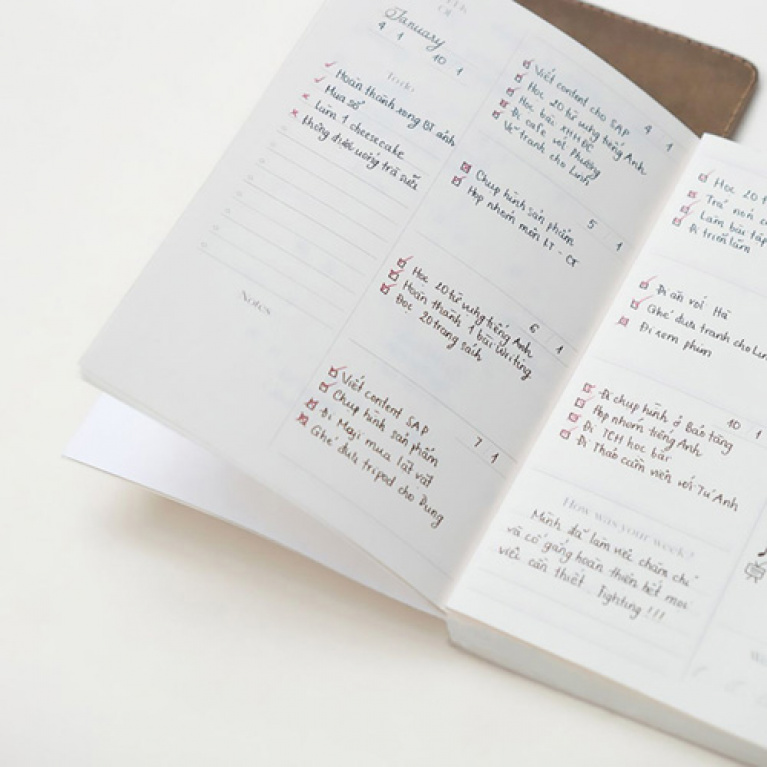 OF
January
4 1 10 1
To do
Hoàn thành xong BT ảnh
Mua sổ
Làm 1 cheesecake
Không được uống trà sữa
Notes
4 1
Viết content cho SAP
Học 20 từ vựng tiếng Anh
Học bài XHHĐC
Đi cafe với Phương
Vẽ tranh cho Linh
5 1
Chụp hình sản phẩm
Họp nhóm môn LT - CT
6 1
Học 20 từ vựng tiếng Anh
Hoàn thành 1 bài Writing
Đọc 20 trang sách
7 1
Viết content SAP
Chụp hình sản phẩm
Đi Magi mua lặt vặt
Ghé đưa tripod cho Dung
Học 20 t
Trả
Làm bài tập
Đi triển lãm
Đi ăn với Hà
Ghé đưa tranh cho Lin
Đi xem phim
10 1
Đi chụp hình ở Bảo tàng
Họp nhóm tiếng Anh
Đi TCH học bài
Đi Thảo cầm viên với Tú Anh
How was your week?
Mình đã làm việc chăm chỉ
và cố gắng hoàn thiện hết mọi
việc cần thiết. Fighting !!!